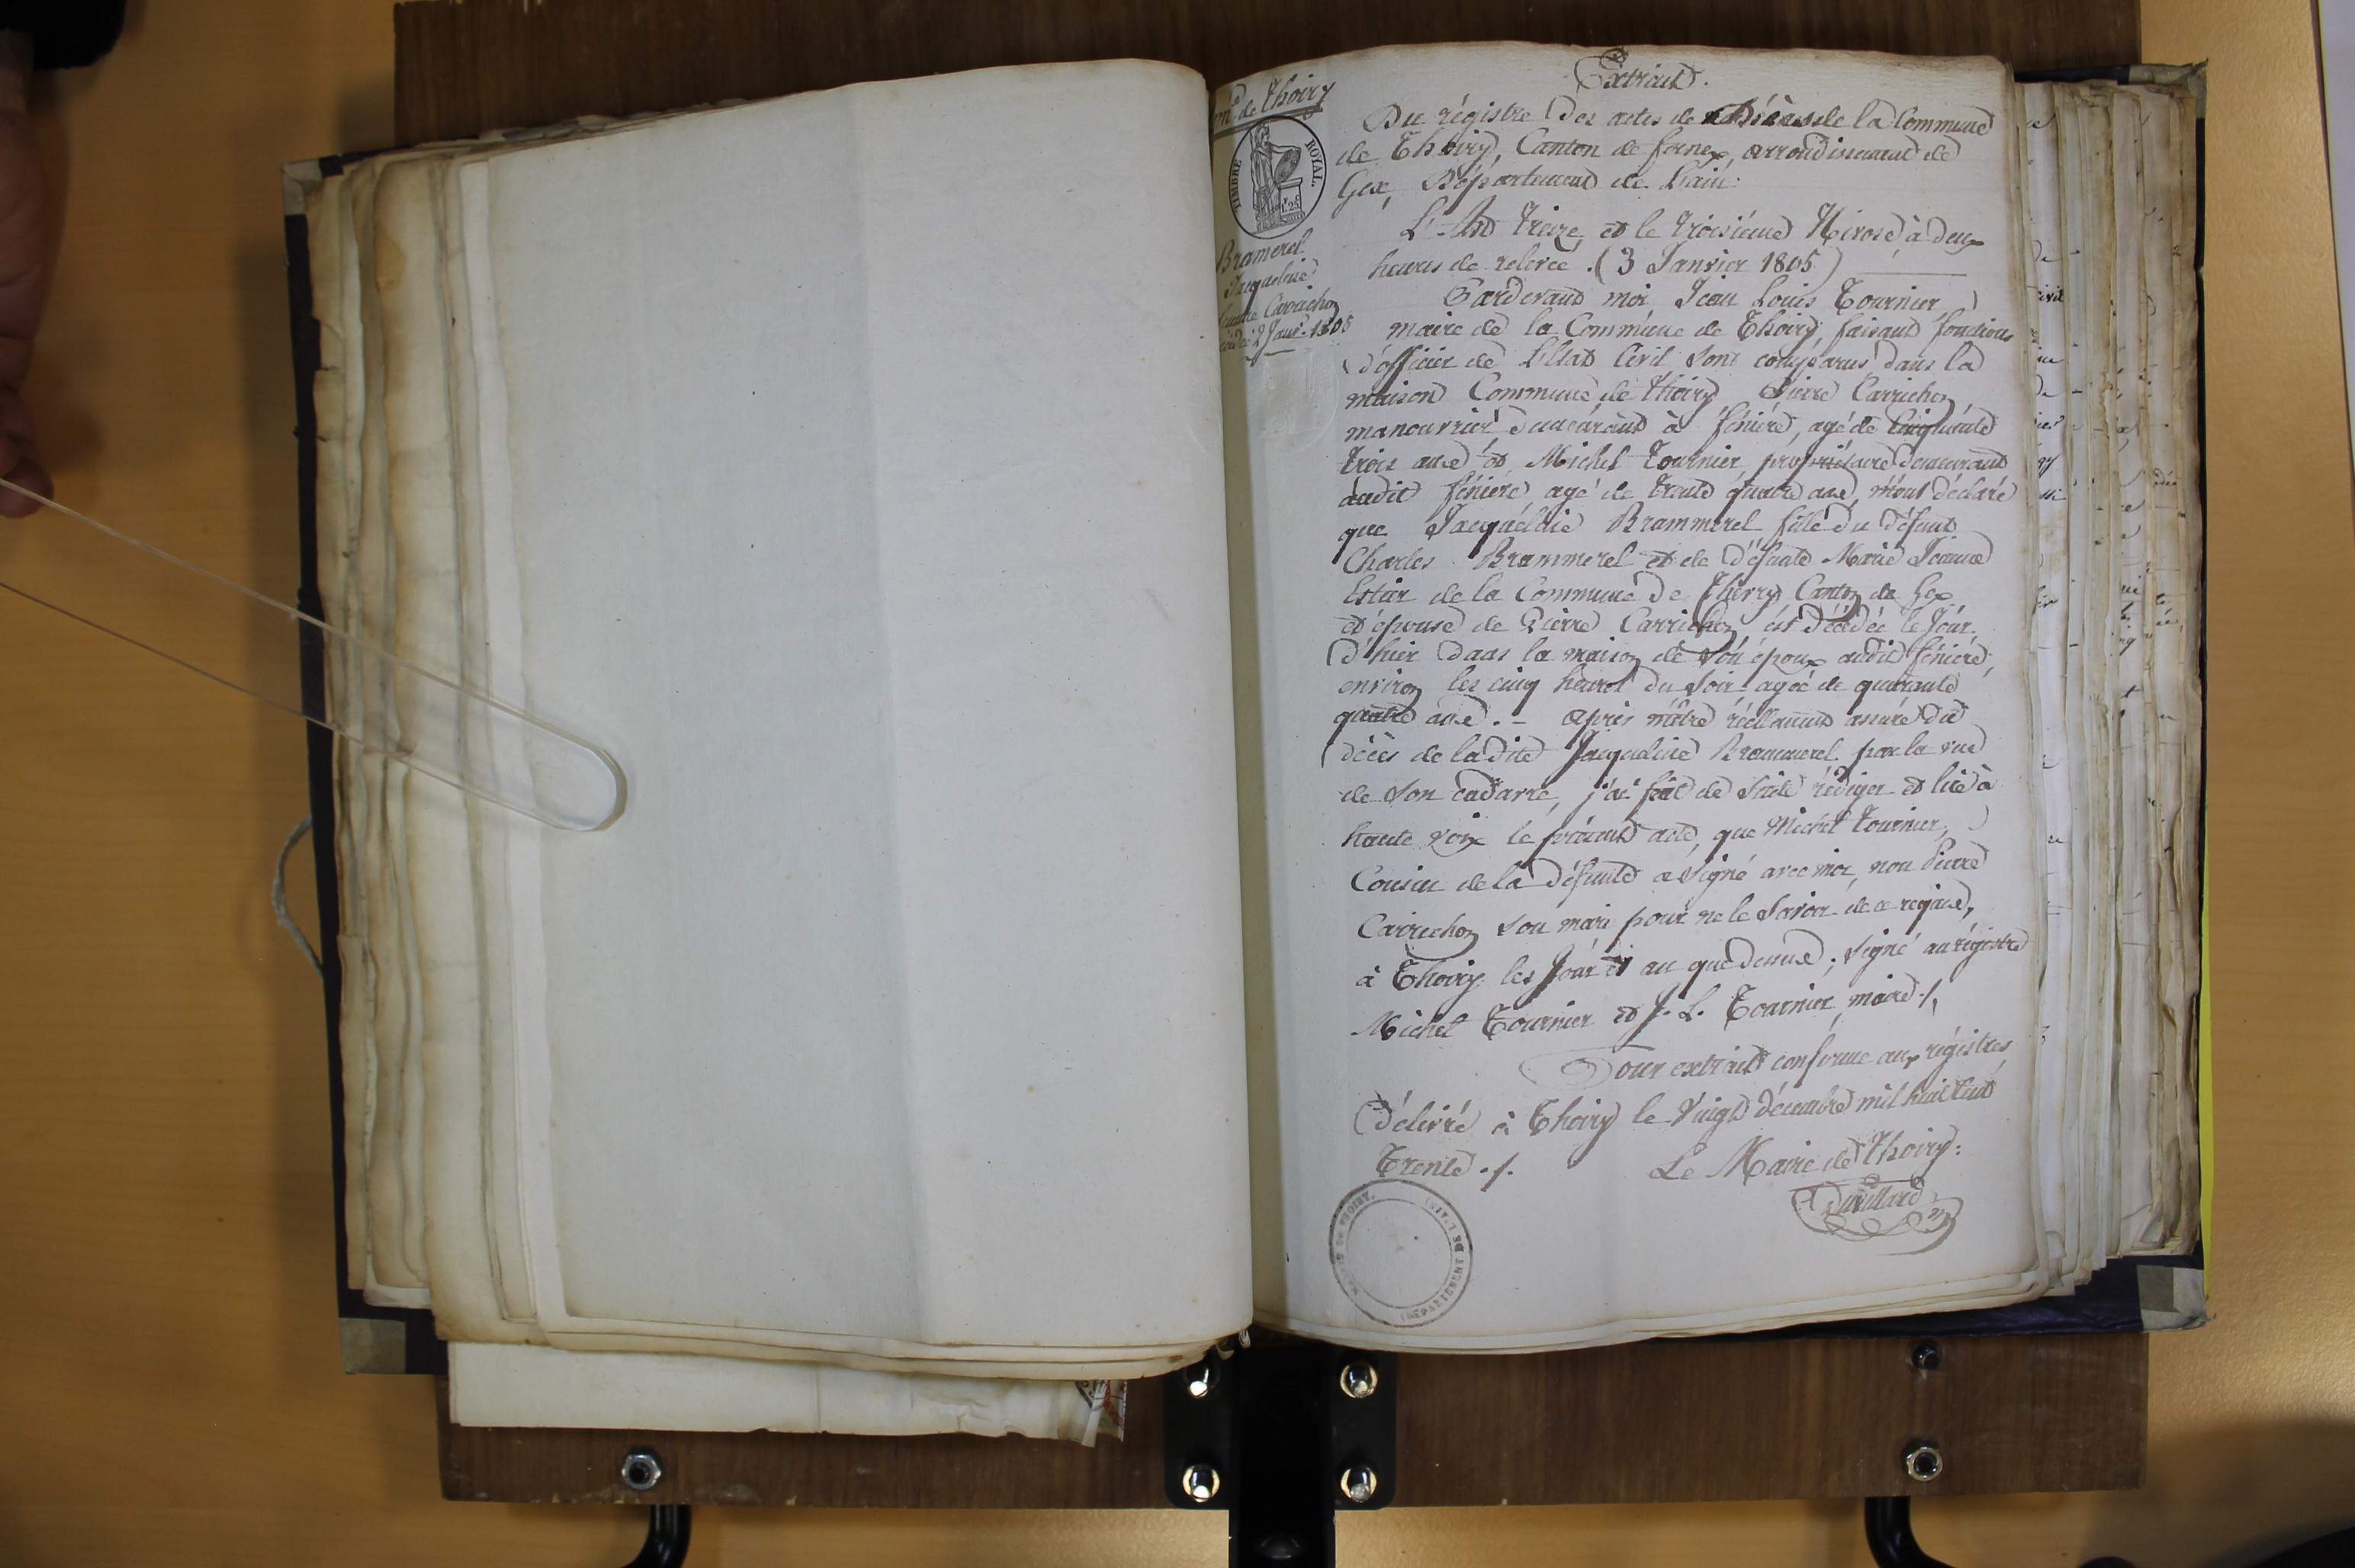 Com.ne de Thoiry
TIMBRE ROYAL.
1.25
Bramerel
Jacqueline
femme Carrichon
décédée 2 Janv. 1805
Extrait.
Du régistre des actes de Décès de la Commune
de Thoiry, Canton de fernex, arrondissement de
Gex, Département de L'ain.
L'An treize, et le troisième Nivose à deux
heures de relevée. (3 Janvier 1805)
Pardevant moi Jean Louis Tournier
maire de la Commune de Thoiry, faisant fonctions
d'officier de L'Etat Civil sont comparus dans la
maison Commune de Thoiry Pierre Carrichon
manouvrier demeurant à fénière, agé de Cinquante
trois ans et Michel Tournier, propriétaire demeurant
audit fénière, agé de trente quatre ans, m'ont déclaré
que Jacqueline Brammerel fille du défunt
Charles Brammerel et de défunte Marie Jeanne
de la Commune de Thoiry Canton de Gex
et épouse de Pierre Carrichon est décédée le Jour
d'hier dans la maison de son époux audit fénière,
environ les cinq heures du soir agée de quarante
quatre ans. - après m'être réellement assuré du
décès de ladite Jacqueline Brammerel par la vue
de son cadavre, j'ai fait de suite rédiger et lire à
haute voix le présent acte, que Michel Tournier,
Cousin de la défunte a signé avec moi, non Pierre
Carrichon son mari pour ne le savoir de ce requis,
à Thoiry les Jour et an que dessus; signé au régistre
Michel Tournier et J. L. Tournier, maire ./.
Pour extrait conforme aux régistres
Délivré à Thoiry le Vingt décembre mil huit cent
Trente ./.
Le Maire de Thoiry:
DE THOIRY.
DÉPARTEMENT DE L'AIN